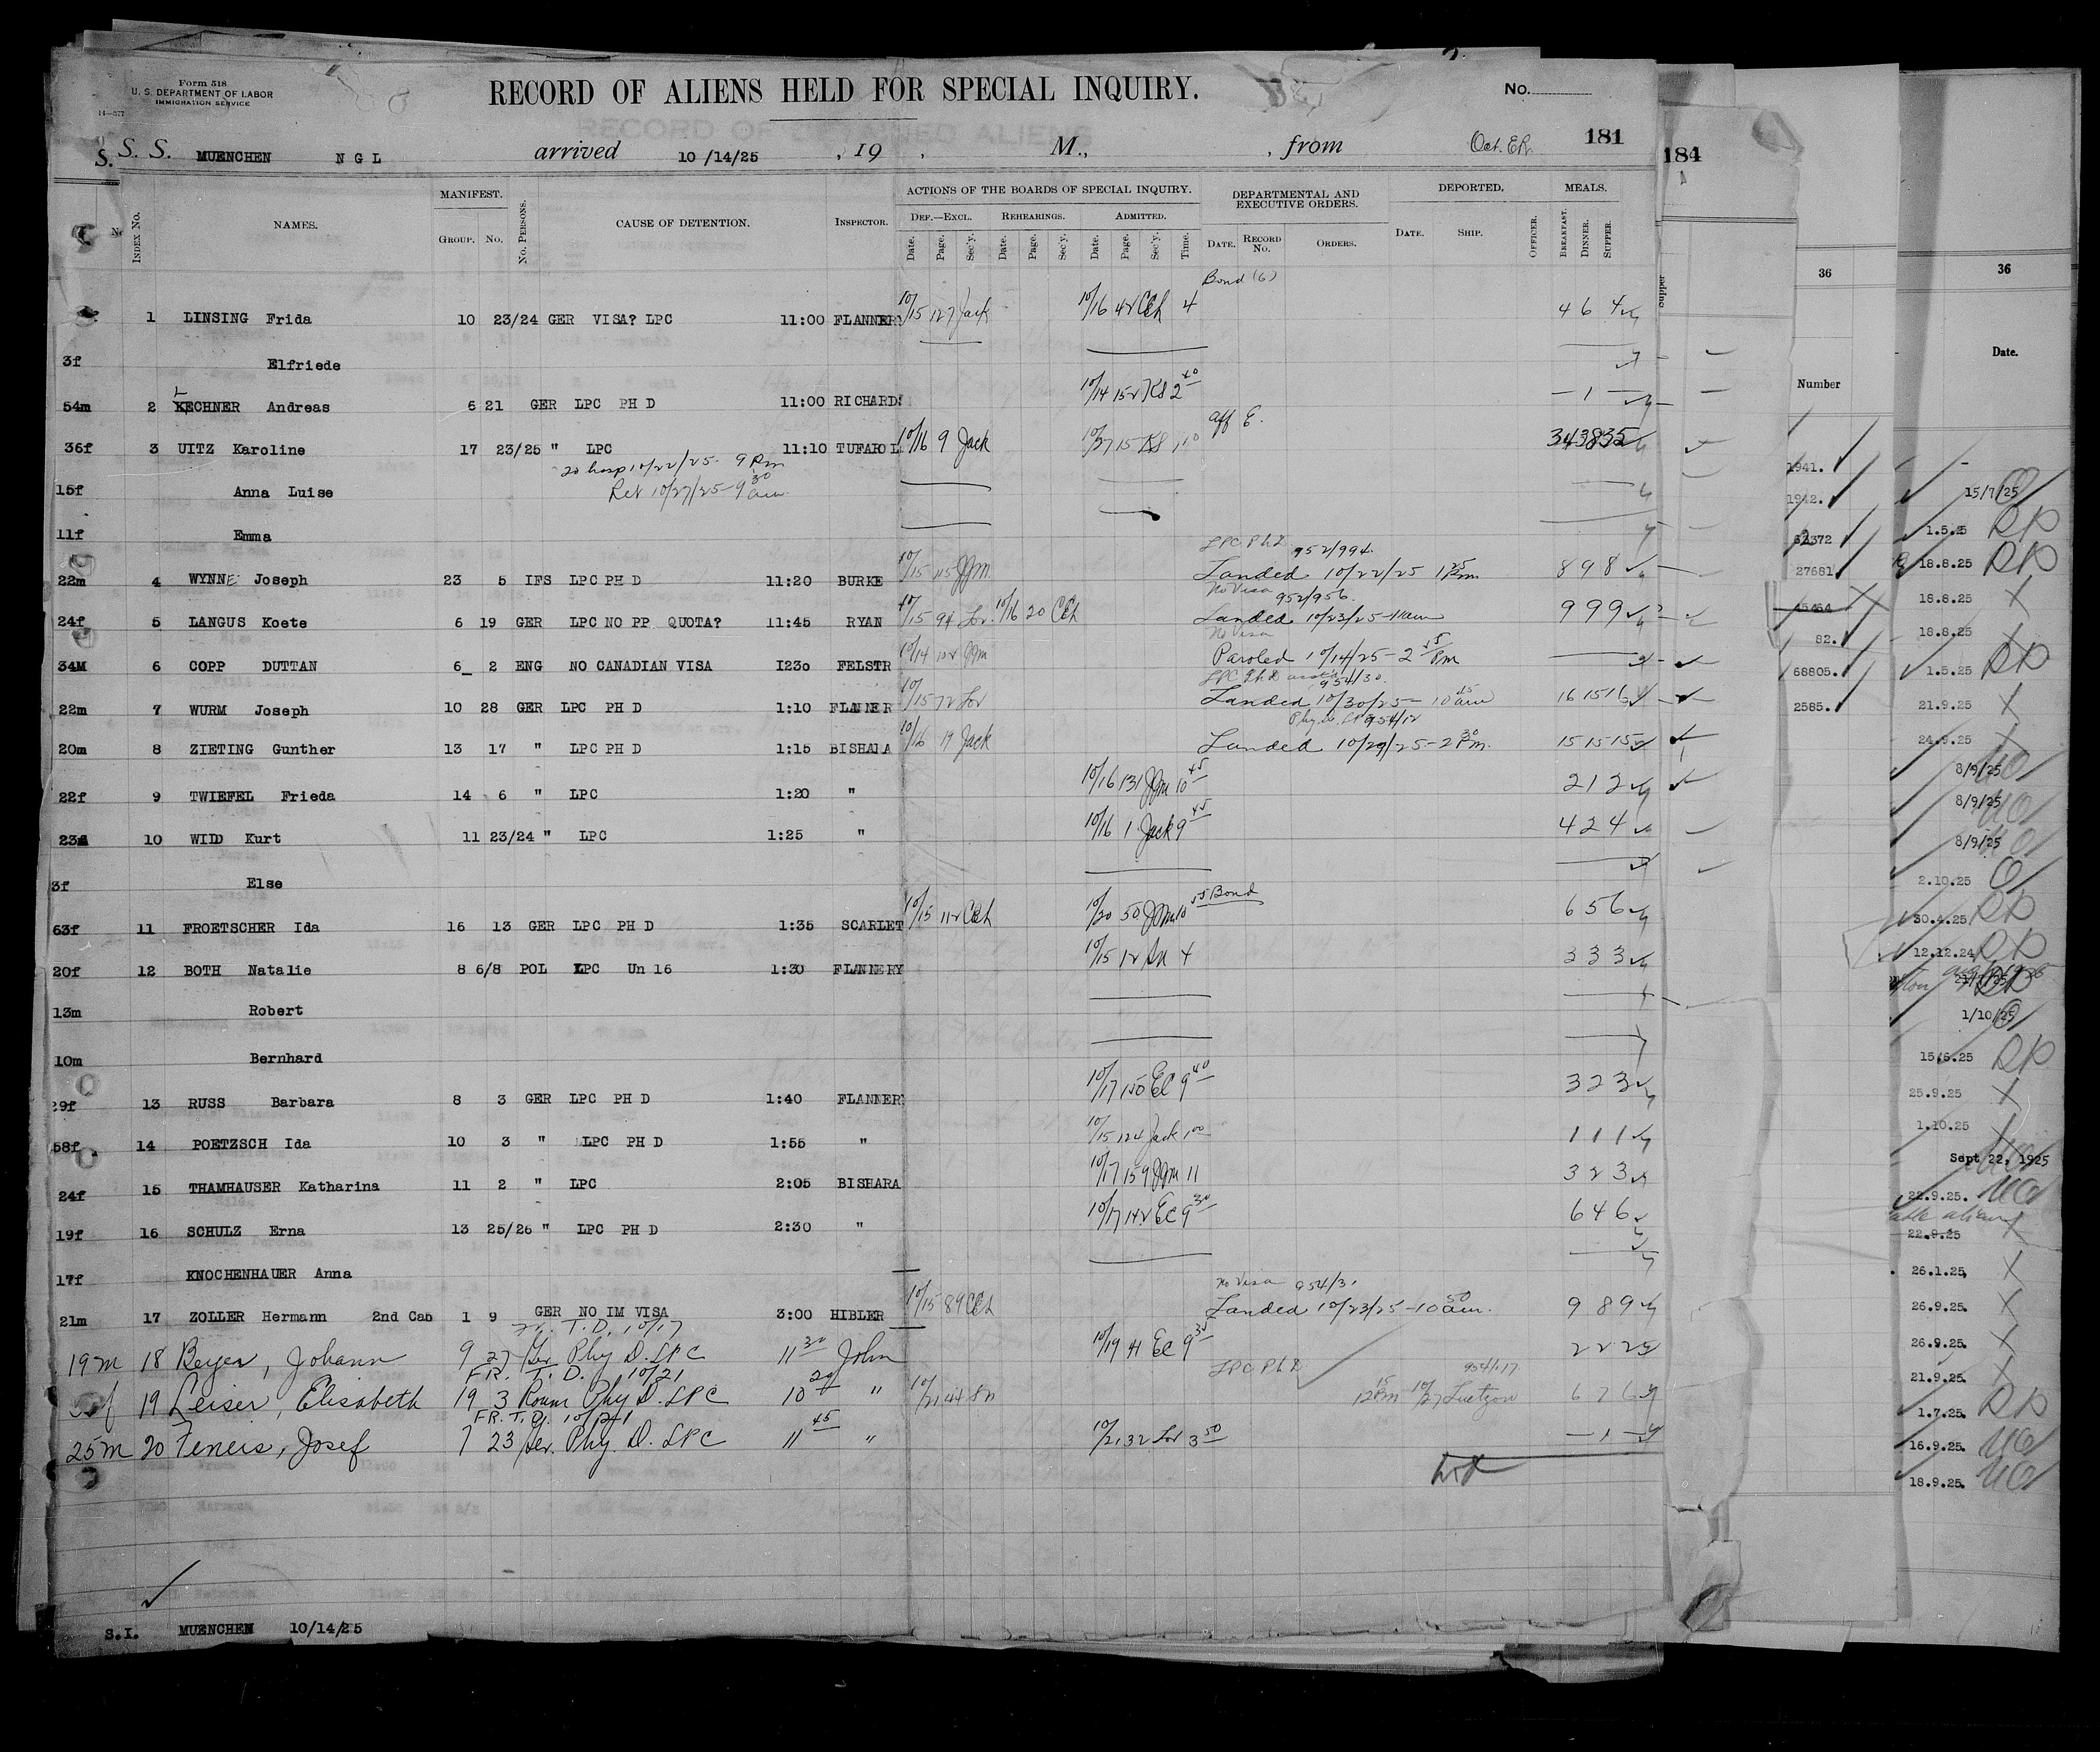 Form 518
U. S. DEPARTMENT OF LABOR
IMMIGRATION SERVICE
14—577
RECORD OF ALIENS HELD FOR SPECIAL INQUIRY.
No.
181
S. S. MUENCHEN N G L arrived 10 /14/25 , 19 , M., , from Oct.
184
INDEX NO. NAMES. MANIFEST. GROUP. NO. NO. PERSONS. CAUSE OF DETENTION. INSPECTOR. ACTIONS OF THE BOARDS OF SPECIAL INQUIRY. DEPARTMENTAL AND EXECUTIVE ORDERS. DEPORTED. MEALS.
DEF.—EXCL. REHEARINGS. ADMITTED.
Date. Page. Sec'y. Date. Page. Sec'y. Date. Page. Sec'y. Time. DATE. RECORD NO. ORDERS. DATE. SHIP. OFFICER. BREAKFAST. DINNER. SUPPER.
Bond (6)
1 LINSING Frida 10 23/24 GER VISA? LPC 11:00 FLANNERY 10/15 127 Jack 10/16 42 CEh 4 4 6 4
3f Elfriede
54m 2 KECHNER Andreas 6 21 GER LPC PH D 11:00 RICHARDS 10/14 152 KS 2 40 — 1 —
aff E.
36f 3 UITZ Karoline 17 23/25 " LPC 11:10 TUFAROL 10/16 9 Jack 10/27 15 KS 343835
to hosp 10/22/25 9 Pm
15f Anna Luise Ret 10/27/25 - 9 30 am
11f Emma
LPC PhD 952/994
22m 4 WYNNE Joseph 23 5 IFS LPC PH D 11:20 BURKE 10/15 115 JJm Landed 10/22/25 1 25 Pm 8 9 8
No Visa 952/956
24f 5 LANGUS Koete 6 19 GER LPC NO PP QUOTA? 11:45 RYAN 10/15 94 Lor 10/16 20 CEh Landed 10/23/25 - 11 am 9 9 9
No Visa
34M 6 COPP DUTTAN 6 2 ENG NO CANADIAN VISA 1230 FELSTR 10/14 Paroled 10/14/25 - 2 15 Pm
954/30
22m 7 WURM Joseph 10 28 GER LPC PH D 1:10 FLANNER 10/15 72 Lor Landed 10/30/25 - 10 45 am 16 15 16
954/12
20m 8 ZIETING Gunther 13 17 " LPC PH D 1:15 BISHARA 10/16 19 Jack Landed 10/29/25 - 2 30 Pm. 15 15 15
22f 9 TWIEFEL Frieda 14 6 " LPC 1:20 " 10/16 131 JJm 10 45 2 1 2
23m 10 WILD Kurt 11 23/24 " LPC 1:25 " 10/16 1 Jack 9 45 4 2 4
3f Else
63f 11 FROETSCHER Ida 16 13 GER LPC PH D 1:35 SCARLET 10/15 112 CEh 10/20 50 JJm 10 55 Bond 6 5 6
20f 12 BOTH Natalie 8 6/8 POL LPC Un 16 1:30 FLANNERY 10/15 12 4 3 3 3
13m Robert
10m Bernhard
29f 13 RUSS Barbara 8 3 GER LPC PH D 1:40 FLANNERY 10/17 150 EC 9 40 3 2 3
58f 14 POETZSCH Ida 10 3 " LPC PH D 1:55 " 10/15 124 Jack 1 00 1 1 1
24f 15 THAMHAUSER Katharina 11 2 " LPC 2:05 BISHARA 10/17 159 JJm 11 3 2 3
19f 16 SCHULZ Erna 13 25/26 " LPC PH D 2:30 " 10/17 142 EC 9 30 6 4 6
17f KNOCHENHAUER Anna
No Visa 954/3
21m 17 ZOLLER Hermann 2nd Cab 1 9 GER NO IM VISA 3:00 HIBLER 10/15 89 CEh Landed 10/23/25 - 10 50 am. 9 8 9
Fr. T. D. 10/17
19m 18 Beyer, Johann 9 27 Ger Phy D. LPC 11 30 John 10/19 41 EC 9 35 2 2 2
FR. T. D. 10/21 LPC PhD 954/117
19 Leiser, Elisabeth 19 3 Roum Phy D. LPC 10 20 " 10/21 44 12 15 Pm 10/27 Luetzow 6 7 6
FR. T. D. 10/21
25m 20 Feneis, Josef 7 23 Ger. Phy. D. LPC 11 45 " 10/21 32 Lor 3 50 — 1 —
S.I. MUENCHEN 10/14/25
supper
36
Number
1941.
1942.
62372
27681
45464
82.
68805.
2585.
36
Date.
15/7/25
1.5.25
18.8.25
18.8.25
18.8.25
1.5.25
21.9.25
24.9.25
8/9/25
8/9/25
8/9/25
2.10.25
30.4.25
12.12.24
1/10/25
15/6.25
25.9.25
1.10.25
Sept 22, 1925
22.9.25.
22.9.25
26.1.25,
26.9.25.
26.9.25.
21.9.25.
1.7.25.
16.9.25.
18.9.25.